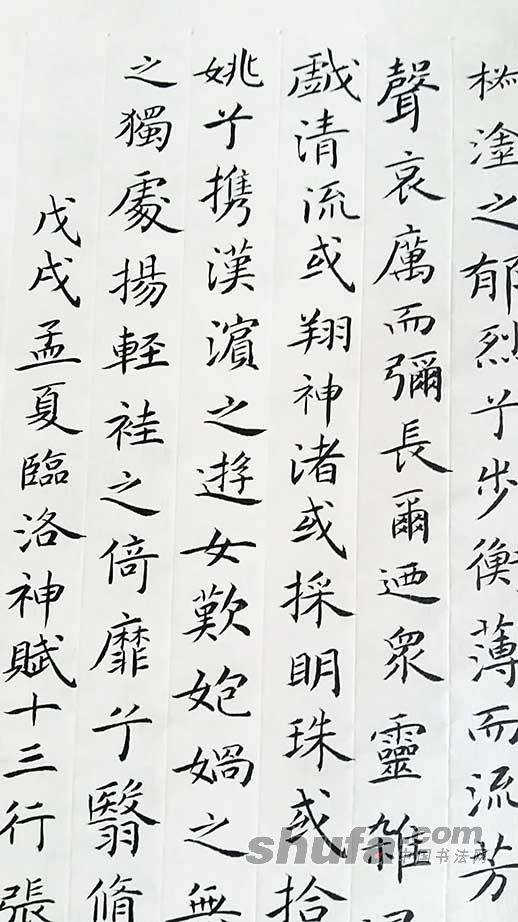 塗之郁烈兮步衡薄而流芳
聲哀厲而彌長爾迺衆靈雜
戲清流或翔神渚或採明珠或拾
姚兮携漢濱之遊女歎匏媧之無
之獨處揚輕袿之倚靡兮翳脩
戊戌孟夏臨洛神賦十三行張
shufa.com
中国书法网